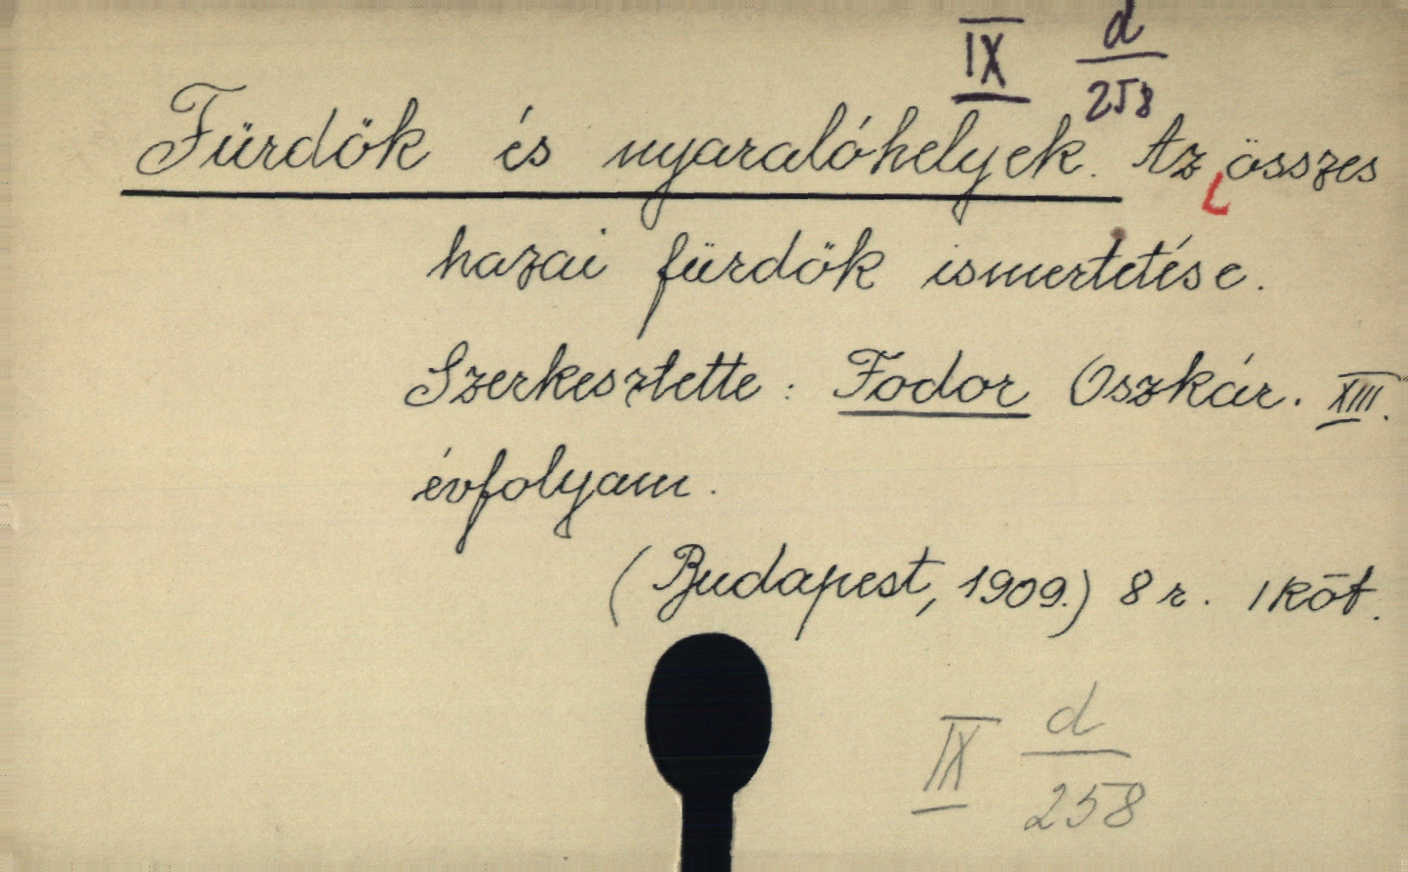 IX d/258
Fürdők és nyaralóhelyek. Az összes
hazai fürdők ismertetése.
Szerkesztette: Fodor Oszkár. XIII.
évfolyam.
(Budapest, 1909.) 8 r. 1 köt.
IX d/258